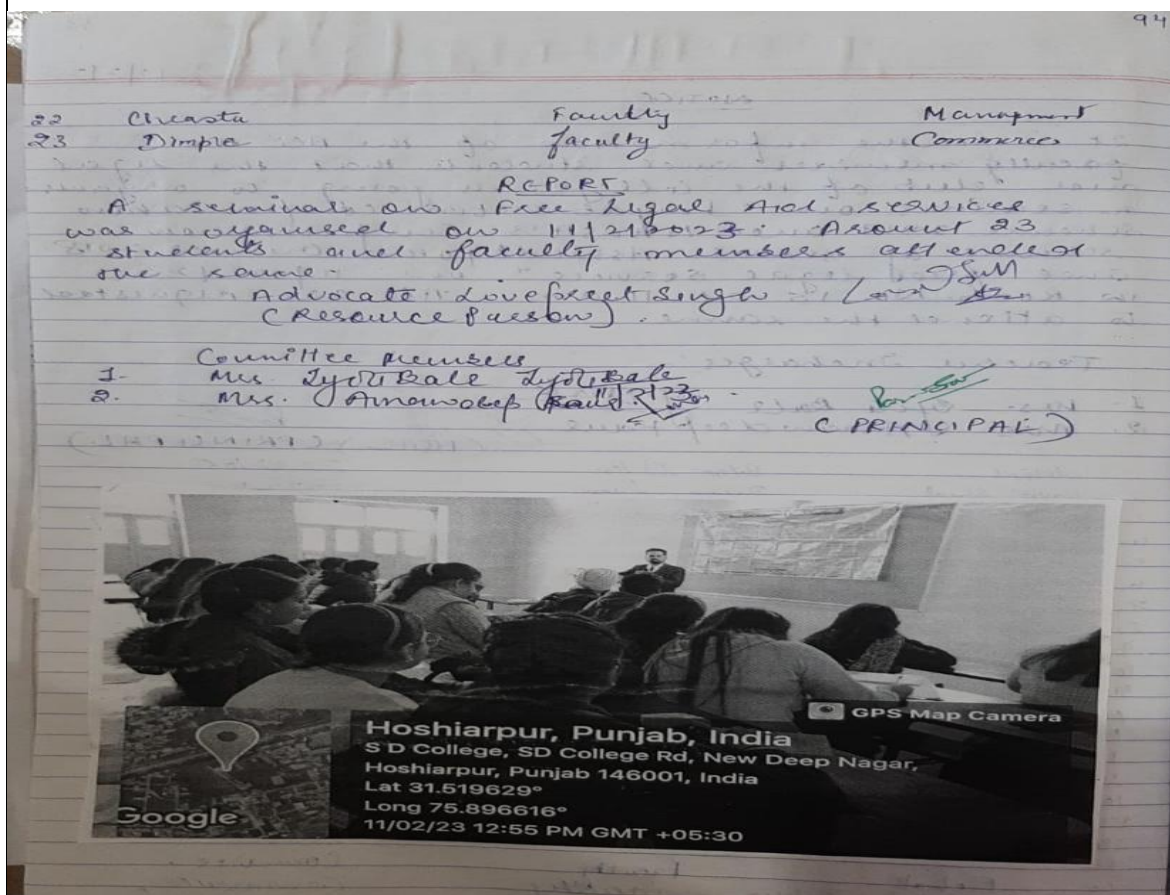 94
22 Cheasta Faculty Management
23 Dimple faculty Commerce
REPORT
A seminar on Free Legal Aid services
was organised on 11/2/2023. Around 23
students and faculty members attended
the same.
Advocate Lovepreet Singh
(Resource Person)
Committee members
1- Mrs Jyoti Bala Jyoti Bala
2. Mrs. Amandeep
(PRINCIPAL)
GPS Map Camera
Hoshiarpur, Punjab, India
S D College, SD College Rd, New Deep Nagar,
Hoshiarpur, Punjab 146001, India
Lat 31.519629°
Long 75.896616°
11/02/23 12:55 PM GMT +05:30
Google